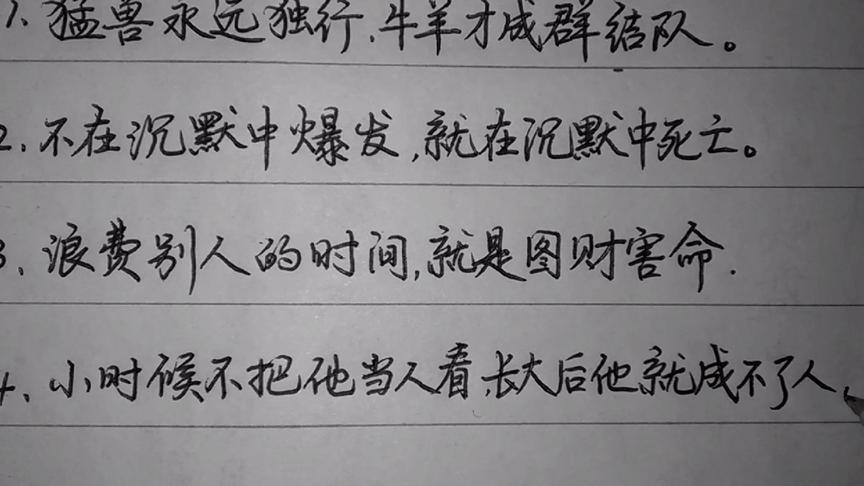 1. 猛兽永远独行,牛羊才成群结队。
2. 不在沉默中爆发,就在沉默中死亡。
3. 浪费别人的时间,就是图财害命.
4. 小时候不把他当人看,长大后他就成不了人,